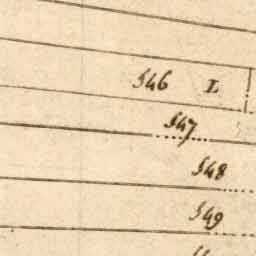 546 L
547
548
549